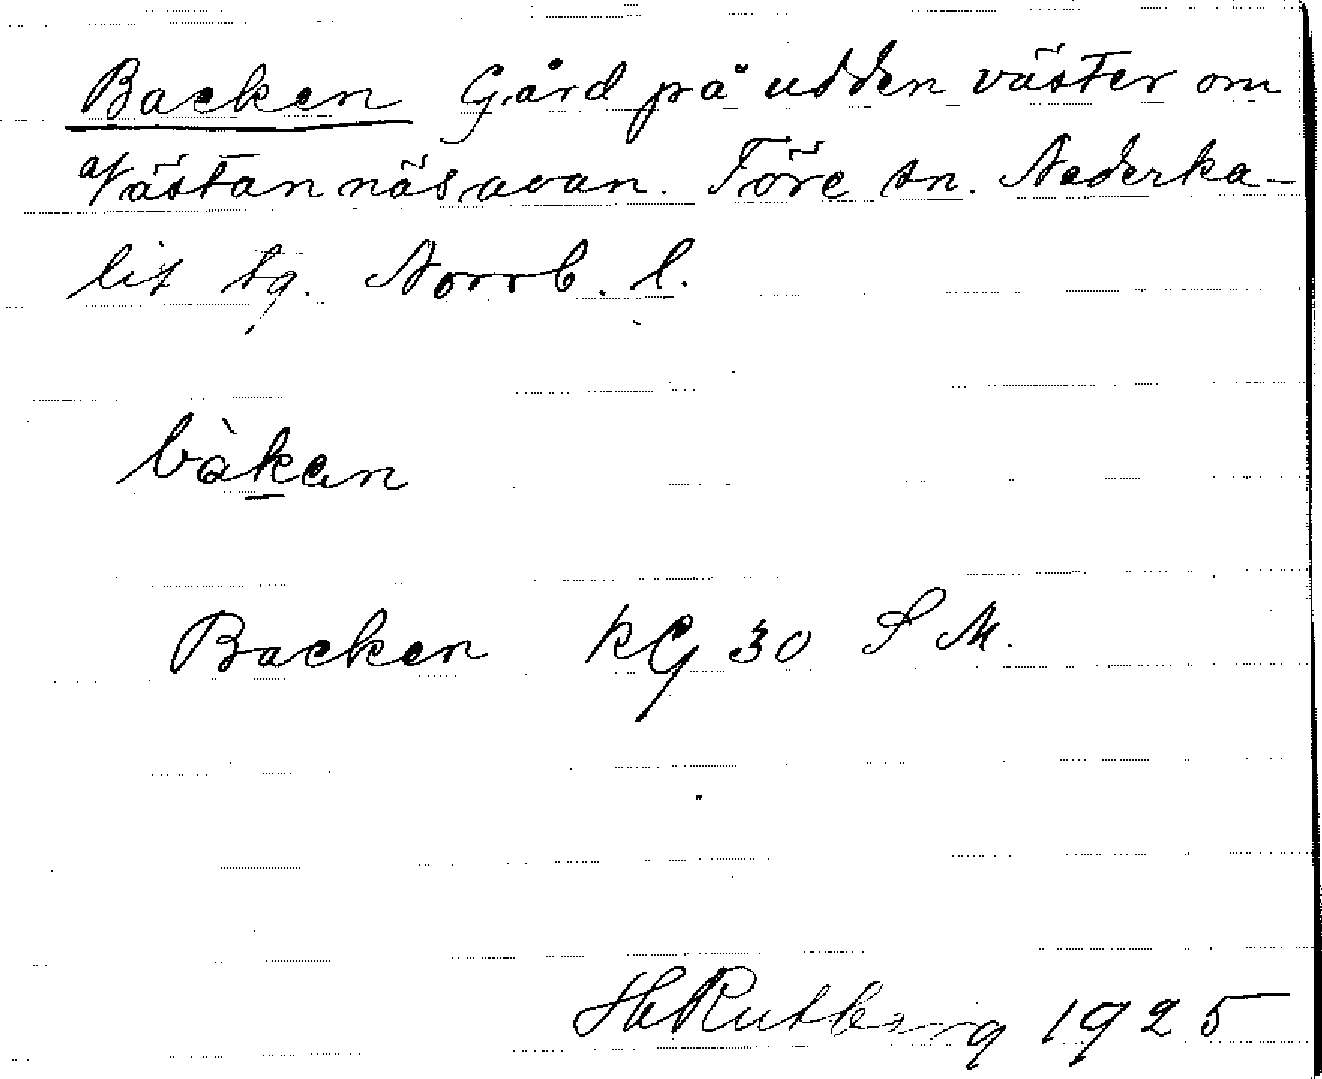 Backen Gård på udden väster om
Västannäsavan. Töre sn. Nederka-
lix tg. Norrb. l.
bàkan
Backen KG 30 S M.
H Rutberg 1925